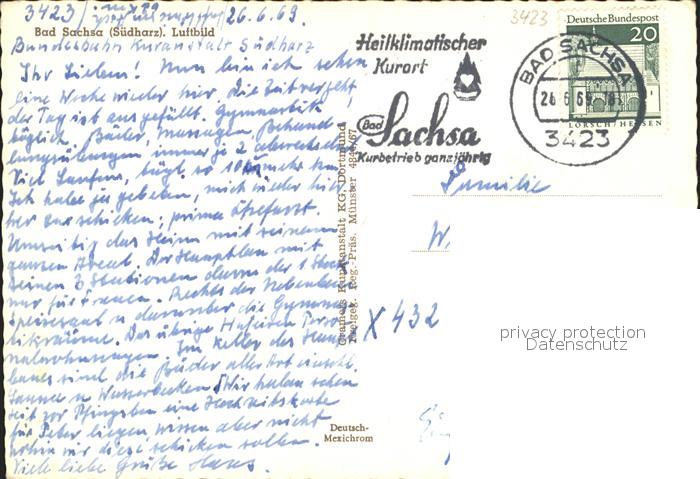 3423 26.6.69.
Bad Sachsa (Südharz). Luftbild
Bundesbahn Kuranstalt Südharz
Ihr Lieben! Nun bin ich schon
eine Woche wieder hier. Die Zeit vergeht,
der Tag ist ausgefüllt. Gymnastik
täglich, Bäder, Massagen, Behand
lungsübungen immer je 2 abwechselnd
Viel Laufen, tägl. so 10 km mehr
Ich habe zu geben, mich wieder hier
her zu schicken; prima
das Heim mit seinem
ganzen Areal. Der Hauptbau mit
seinen 3 Stationen davon der 1 Stock
nur für Frauen. Rechts der Nebenbau
Speisesaal u darunter die Gymnas
tikräume. Das übrige Perso
nalwohnungen. Im Keller des Haupt
baues sind die Bäder aller Art einschl.
Sauna u Wasserbecken. Wir haben schon
seit vor Pfingsten eine Hochzeitskarte
für Peter liegen wissen aber nicht
wohin wir diese schicken sollen.
Viele liebe Grüße Hans.
Cramers Kunstanstalt KG, Dortmund
Freigeg. Reg.-Präs. Münster
Deutsch-
Mexichrom
X 432
Heilklimatischer
Kurort
Bad Sachsa
Kurbetrieb ganzjährig
3423
Deutsche Bundespost
20
LORSCH/HESSEN
BAD SACHSA
26.6.69
3423
Familie
W.
privacy protection
Datenschutz